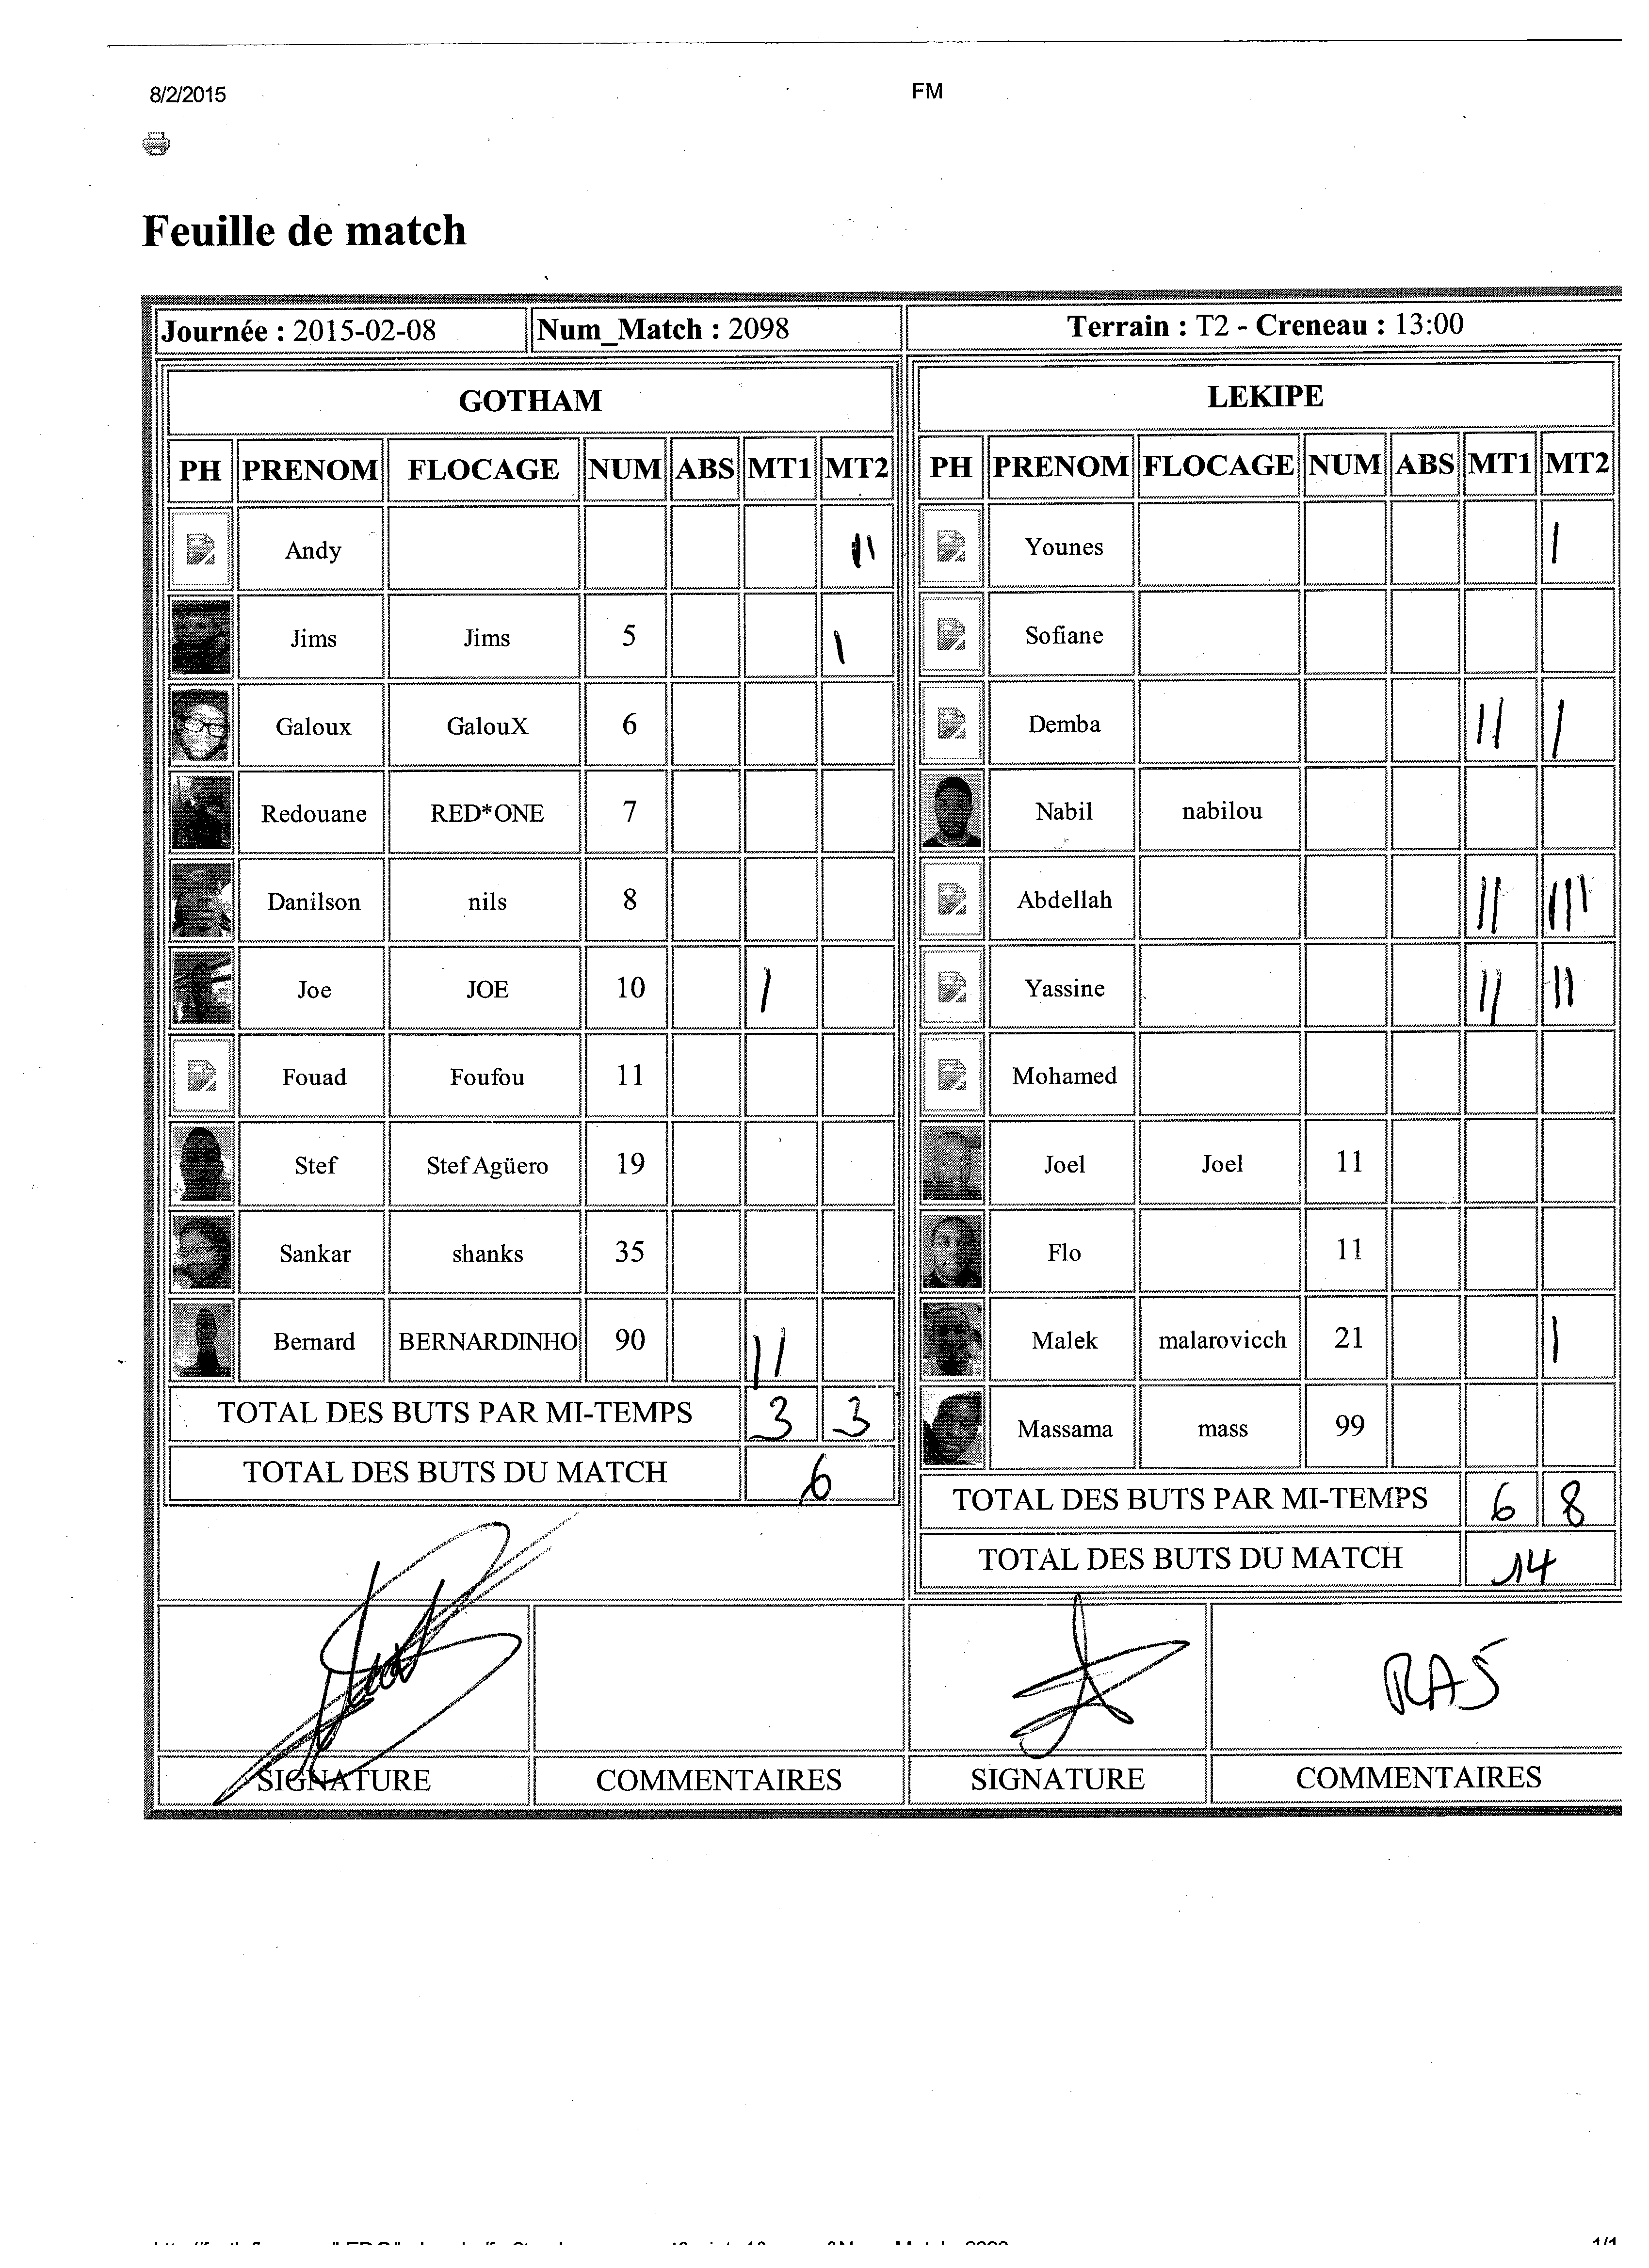 8/2/2015 FM
Feuille de match
Journée : 2015-02-08 Num_Match : 2098 Terrain : T2 - Creneau : 13:00
GOTHAM
PH PRENOM FLOCAGE NUM ABS MT1 MT2
Andy II
Jims Jims 5 I
Galoux GalouX 6
Redouane RED*ONE 7
Danilson nils 8
Joe JOE 10 I
Fouad Foufou 11
Stef Stef Agüero 19
Sankar shanks 35
Bernard BERNARDINHO 90 II
TOTAL DES BUTS PAR MI-TEMPS 3 3
TOTAL DES BUTS DU MATCH 6
LEKIPE
PH PRENOM FLOCAGE NUM ABS MT1 MT2
Younes I
Sofiane
Demba II I
Nabil nabilou
Abdellah II III
Yassine II II
Mohamed
Joel Joel 11
Flo 11
Malek malarovicch 21 I
Massama mass 99
TOTAL DES BUTS PAR MI-TEMPS 6 8
TOTAL DES BUTS DU MATCH 14
RAS
SIGNATURE COMMENTAIRES SIGNATURE COMMENTAIRES
1/1